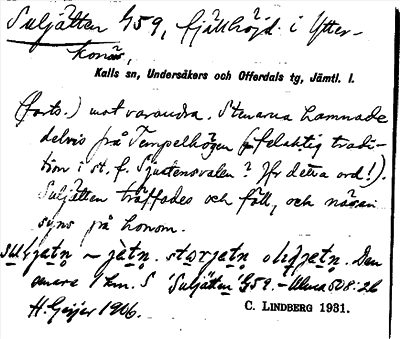 Suljätten G59, fjällhöjd i Ytter-
konäs,
Kalls sn, Undersåkers och Offerdals tg, Jämtl. l.
(forts.) mot varandra. Stenarna hamnade
delvis på Tempelhögen (felaktig tradi-
tion i st. f. Sjustensvalen? Jfr detta ord!).
Suljätten träffades och föll, och näsan
syns på honom.
Den
senare 1 km. S 'Suljätten' G59. - Ulma 508:26
H. Geijer 1906.
C. LINDBERG 1931.